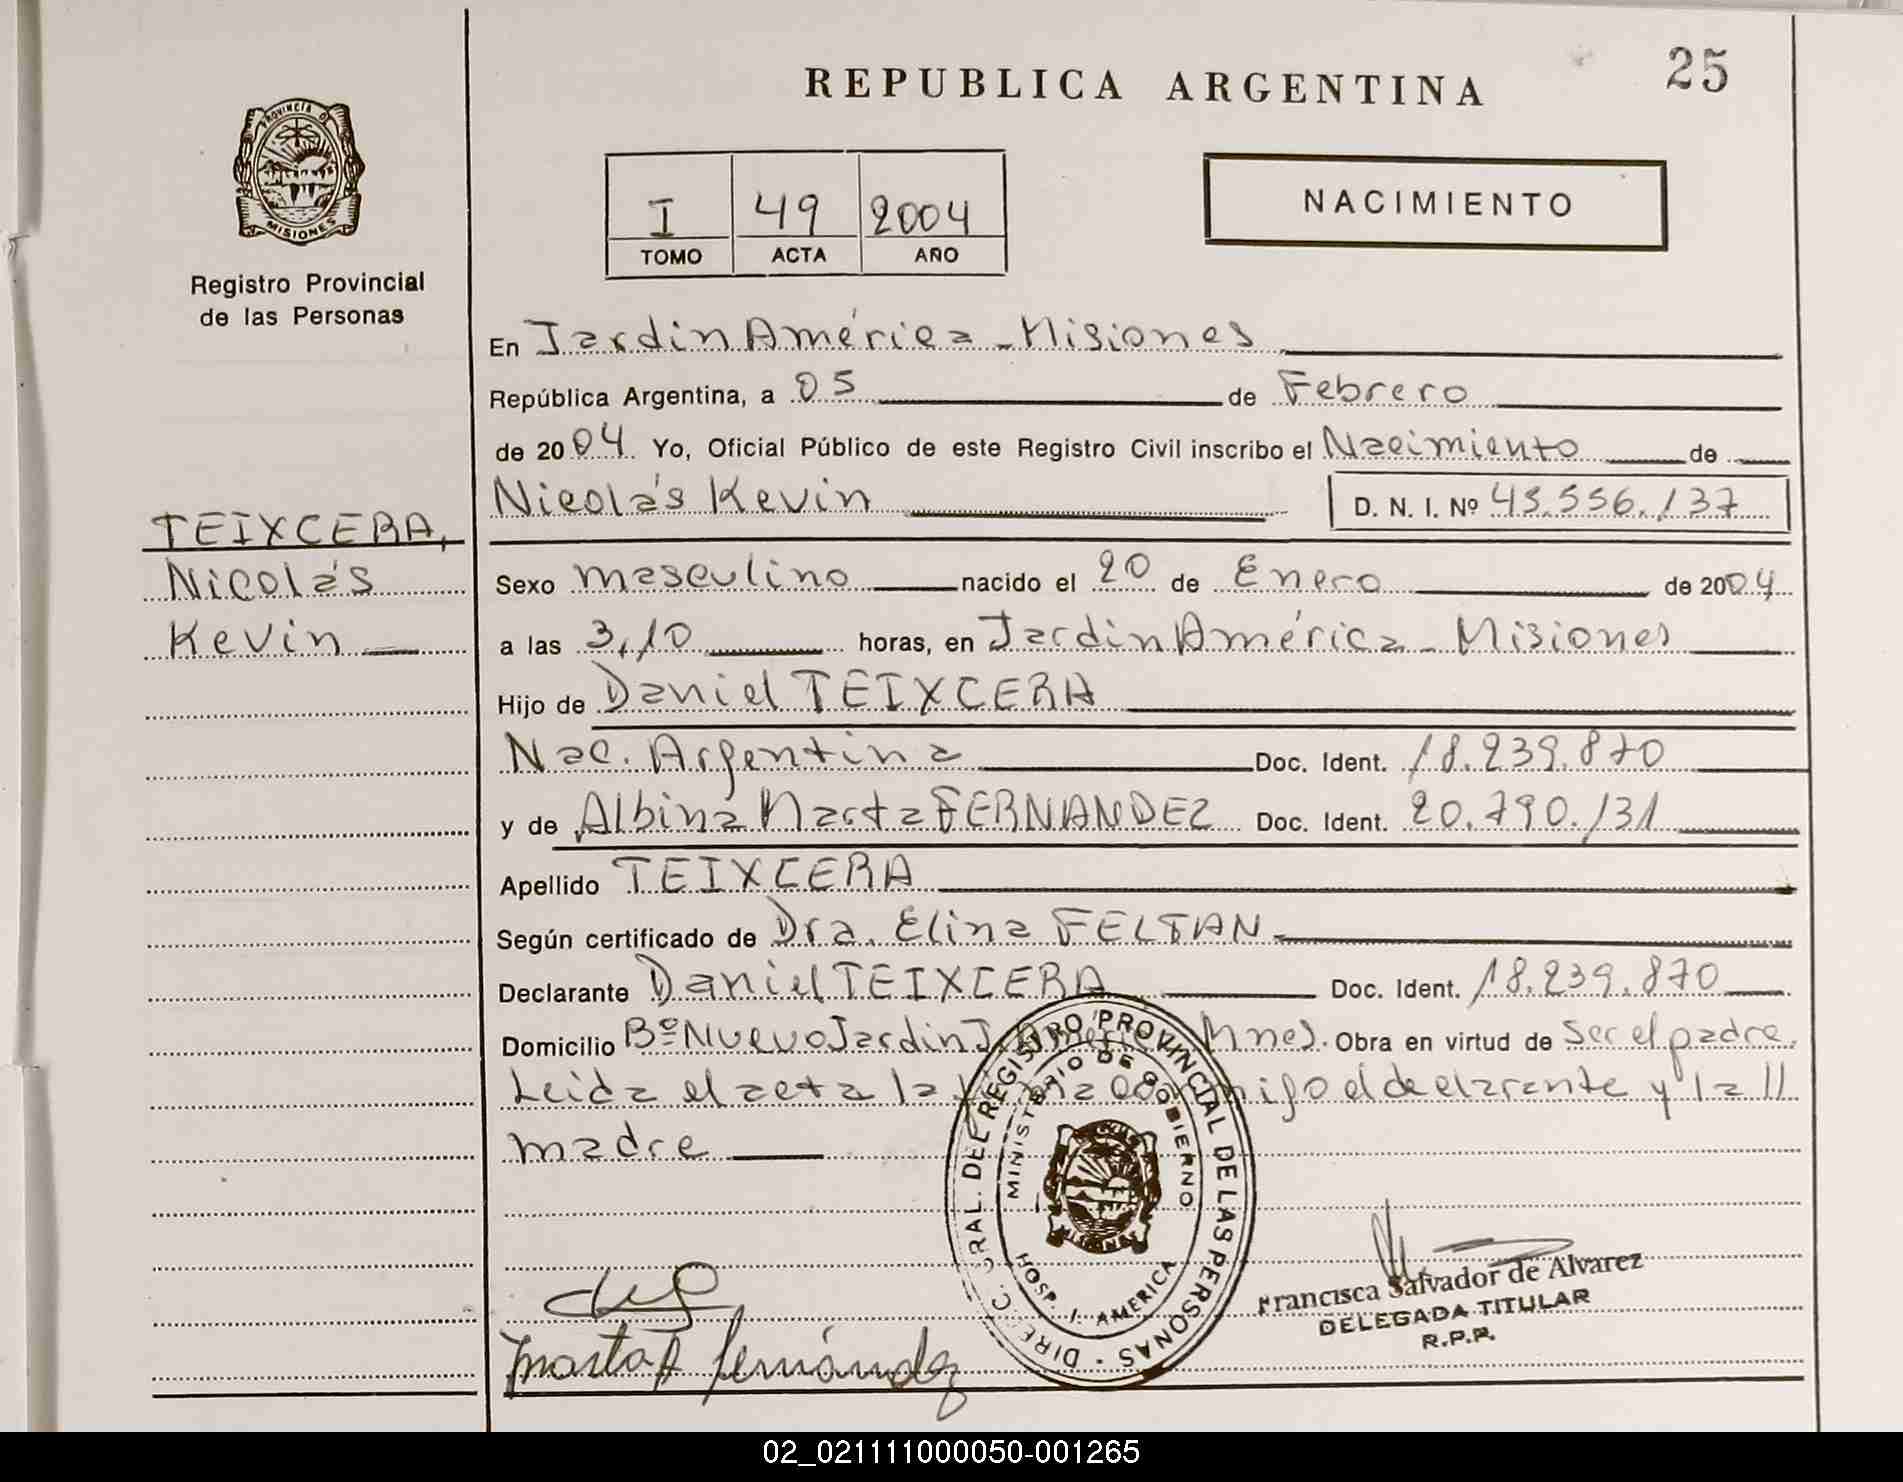 REPUBLICA ARGENTINA
25
PROVINCIA DE
MISIONES
Registro Provincial
de las Personas
I 49 2004
TOMO ACTA AÑO
NACIMIENTO
En Jardin América - Misiones
República Argentina, a 05 de Febrero
de 2004 Yo, Oficial Público de este Registro Civil inscribo el Nacimiento de
Nicolás Kevin D. N. I. Nº 45.556.137
TEIXCERA,
Nicolás
Kevin
Sexo masculino nacido el 20 de Enero de 2004
a las 3,10 horas, en Jardin América - Misiones
Hijo de Daniel TEIXCERA
Nac. Argentina Doc. Ident. 18.239.870
y de Albina Marta FERNANDEZ Doc. Ident. 20.790.131
Apellido TEIXCERA
Según certificado de Dra. Elina
Declarante Daniel TEIXCERA Doc. Ident. 18.239.870
Domicilio Bº Nuevo Jardin J. América Mnes. Obra en virtud de Ser el padre.
Leida el acta la firma conmigo el declarante y la
madre
DIREC. GRAL. DEL REGISTRO PROVINCIAL DE LAS PERSONAS
MINISTERIO DE GOBIERNO
MISIONES
HOSP. J. AMERICA
Marta A Fernández
Francisca Salvador de Alvarez
DELEGADA TITULAR
R.P.P.
02_021111000050-001265